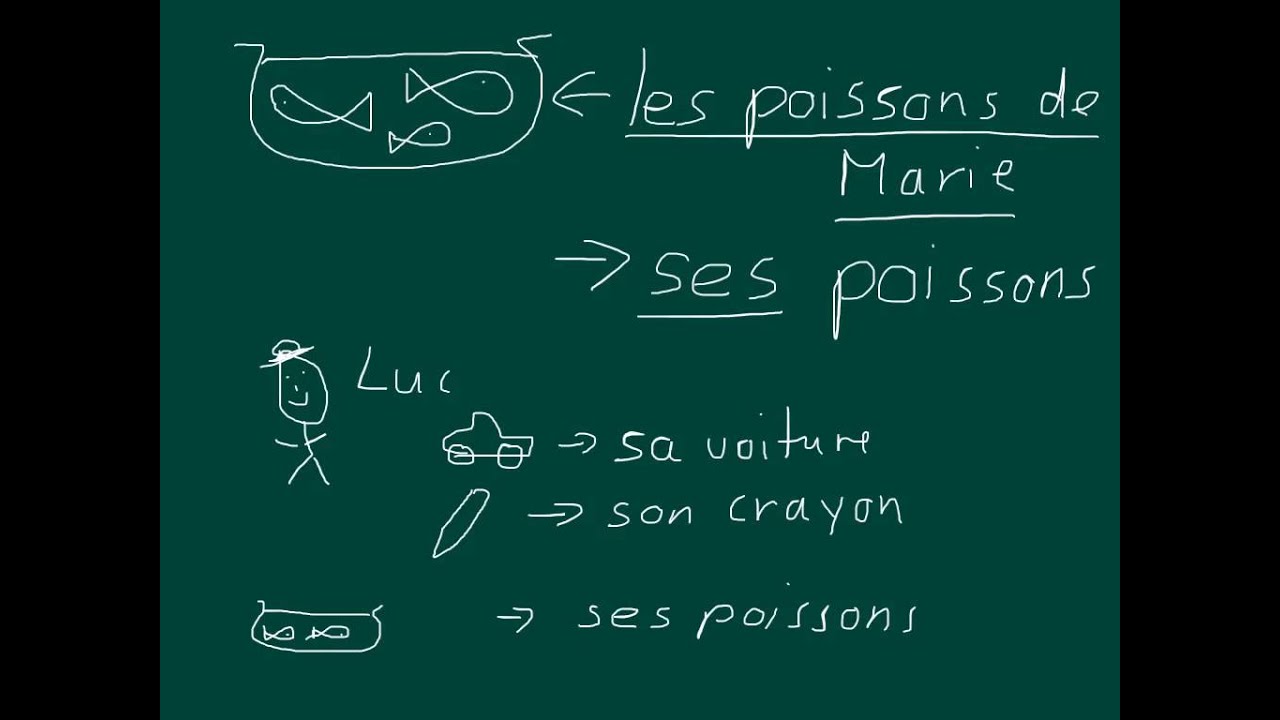 ← les poissons de
Marie
→ ses poissons
Luc
→ sa voiture
→ son crayon
→ ses poissons